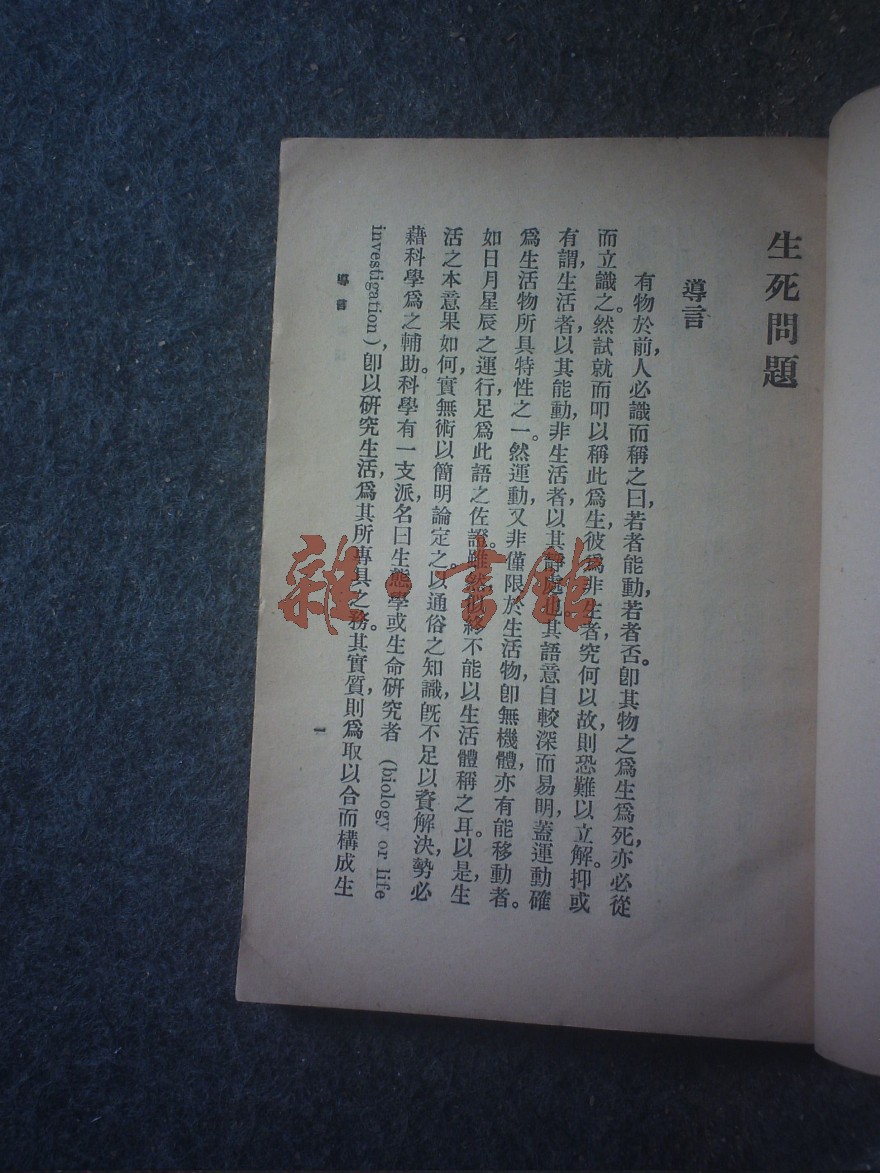 生死問題
導言
有物於前，人必識而稱之曰，若者能動，若者否。卽其物之爲生爲死，亦必從
而立識之。然試就而叩以稱此爲生，彼爲非生者，究何以故，則恐難以立解。抑或
有謂生活者，以其能動，非生活者，以其靜處也。其語意自較深而易明，蓋運動確
爲生活物所具特性之一。然運動，又非僅限於生活物，卽無機體，亦有能移動者。
如日月星辰之運行，足爲此語之佐證。雖然，似終不能以生活體稱之耳。以是，生
活之本意果如何，實無術以簡明論定之。以通俗之知識，旣不足以資解決，勢必
藉科學爲之輔助。科學有一支派，名曰生態學或生命硏究者 (biology or life
investigation)，卽以硏究生活，爲其所專具之務。其實質，則爲取以合而構成生
導言
一
雜·書館